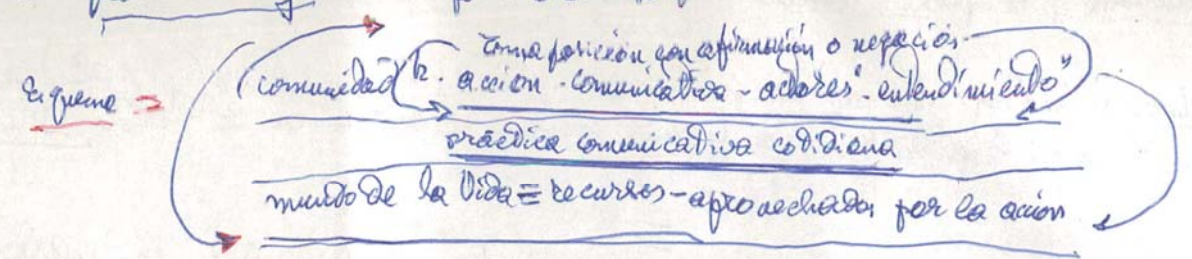 Esquema ⇒
toma posición con afirmación o negación.
comunidad h. acción - comunicativa - actores "entendimiento"
práctica comunicativa cotidiana
mundo de la Vida = recursos - aprovechados por la acción